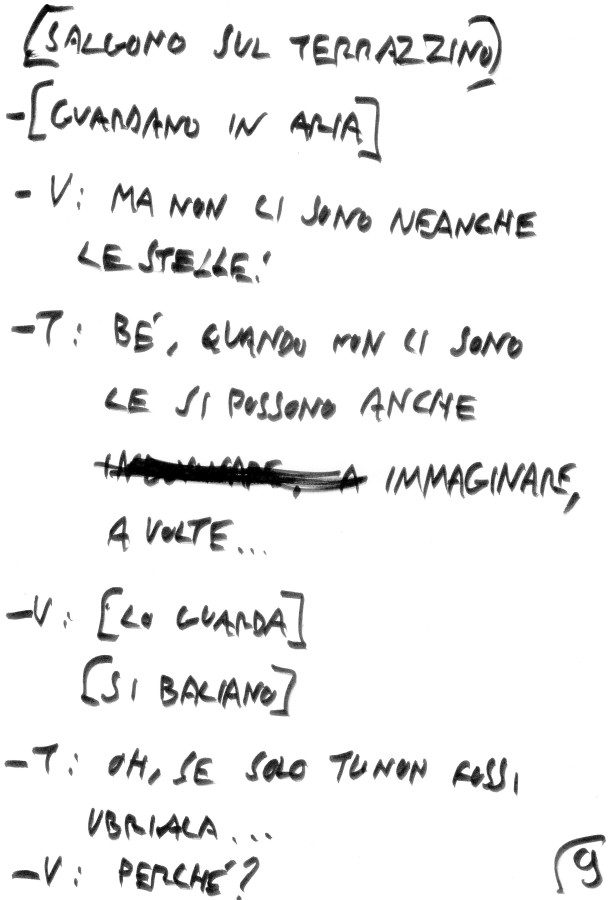 [SALGONO SUL TERRAZZINO)
-[GUARDANO IN ARIA]
- V: MA NON CI SONO NEANCHE
LE STELLE!
-T: BE', QUANDO NON CI SONO
LE SI POSSONO ANCHE
IMMAGINARE,
A VOLTE...
-V: [LO GUARDA]
[SI BACIANO]
-T: OH, SE SOLO TU NON FOSSI
UBRIACA...
-V: PERCHE'?
9